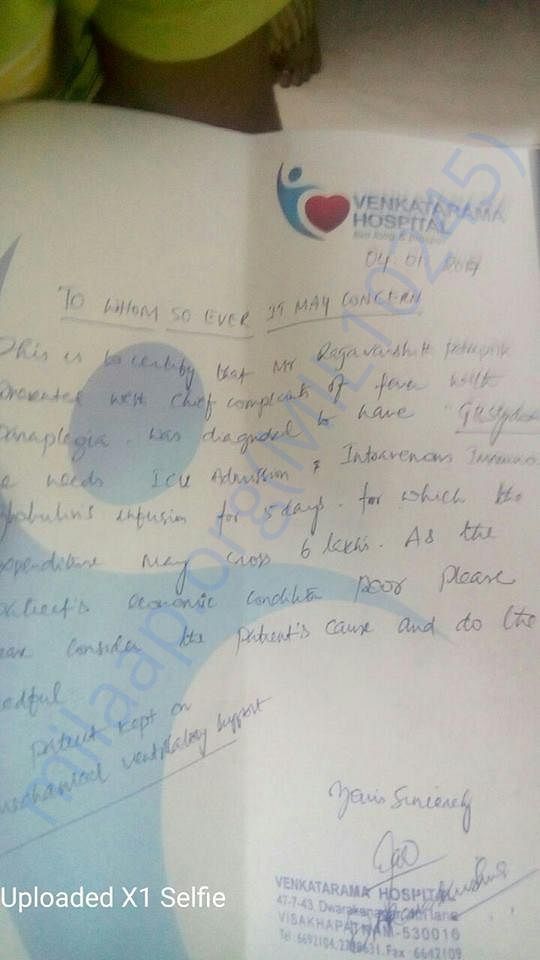 VENKATARAMA
HOSPITAL
04.01.2017
TO WHOM SO EVER IT MAY CONCERN,
This is to certify that Mr
presented with chief complaints of fever with
was diagnosed to have
needs ICU Admission & Intravenous Immuno
globulins infusion for 5 days. for which the
expenditure may cross 6 lakhs. As the
patient's economic condition poor please
consider the patient's cause and do the
needful
patient kept on
mechanical ventilatory support
Yours Sincerely
VENKATARAMA HOSPITAL
47-7-43, Dwarakanagar,
VISAKHAPATNAM-530016
Tel : 6692104, Fax 6642109
milaap.org(MIL10245)
Uploaded X1 Selfie